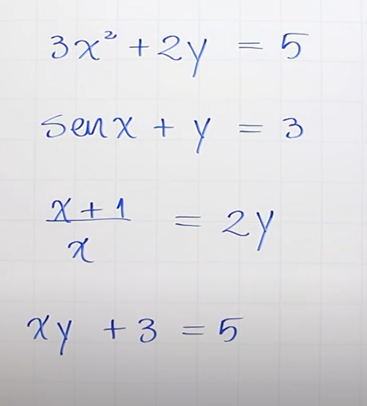 3x² + 2y = 5
sen x + y = 3
x + 1
x
= 2y
xy + 3 = 5